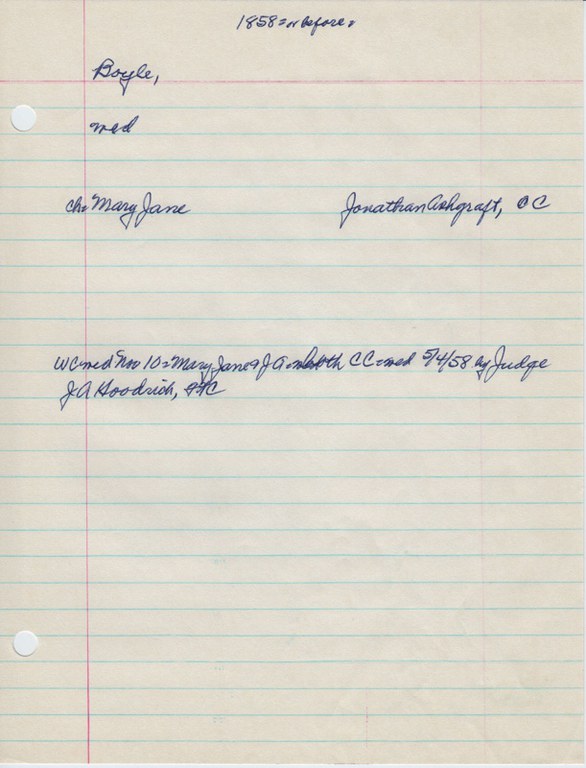 1858 = or before.
Boyle,
md
ch = Mary Jane Jonathan Ashgraft, CC
WC md No 10 = Mary Jane & J A = both CC = md 5/4/58 by Judge
J A Goodrich,